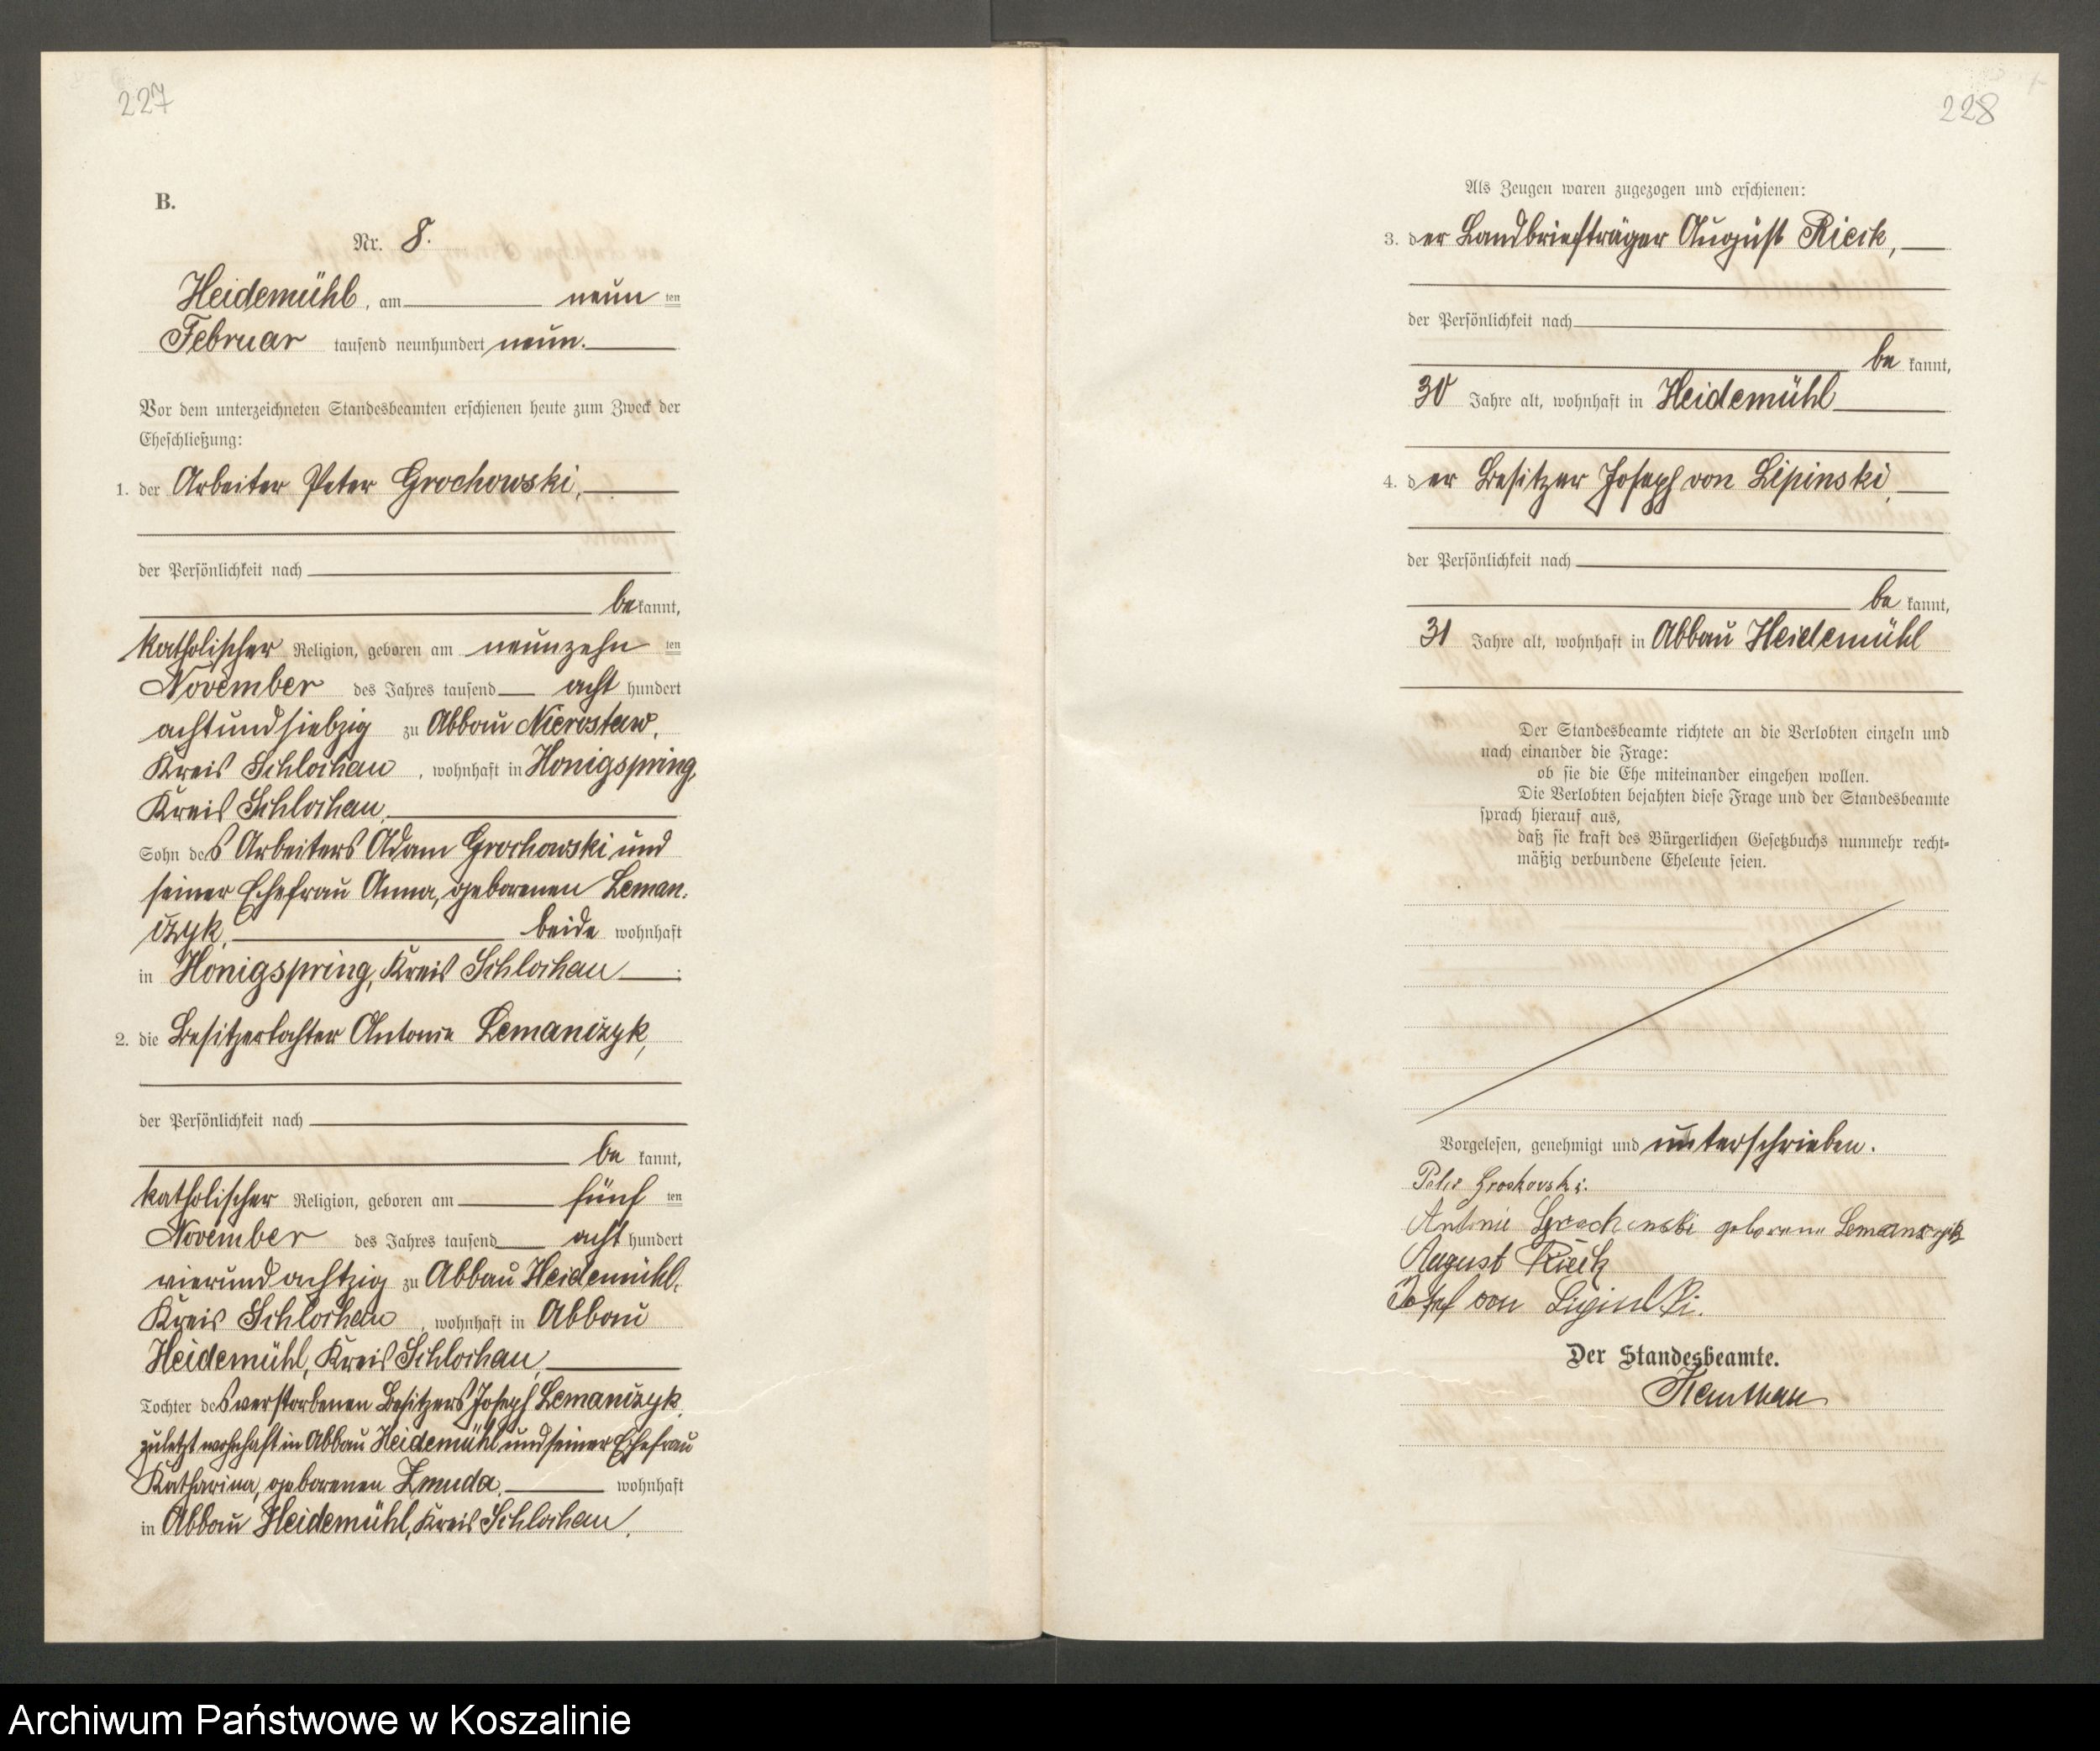 227
B.
Nr. 8.
Heidemühl, am neun ten
Februar tausend neunhundert neun.
Vor dem unterzeichneten Standesbeamten erschienen heute zum Zweck der
Eheschließung:
1. der Arbeiter Peter Grochowski,
der Persönlichkeit nach
be kannt,
katholischer Religion, geboren am neunzehn ten
November des Jahres tausend acht hundert
achtundsiebzig zu Abbau Nierostaw,
Kreis Schlochau, wohnhaft in Honigspring,
Kreis Schlochau,
Sohn des Arbeiters Adam Grochowski und
seiner Ehefrau Anna, geborenen Leman-
czyk, beide wohnhaft
in Honigspring, Kreis Schlochau.
2. die Besitzertochter Antonie Lemanczyk,
der Persönlichkeit nach
be kannt,
katholischer Religion, geboren am fünf ten
November des Jahres tausend acht hundert
vierundachtzig zu Abbau Heidemühl,
Kreis Schlochau, wohnhaft in Abbau
Heidemühl, Kreis Schlochau,
Tochter des verstorbenen Besitzers Joseph Lemanczyk
zuletzt wohnhaft in Abbau Heidemühl und seiner Ehefrau
Katharina, geborenen Zmuda, wohnhaft
in Abbau Heidemühl, Kreis Schlochau.
228
Als Zeugen waren zugezogen und erschienen:
3. der Landbriefträger August Rieck,
der Persönlichkeit nach
be kannt,
30 Jahre alt, wohnhaft in Heidemühl
4. der Besitzer Joseph von Lipinski,
der Persönlichkeit nach
be kannt,
31 Jahre alt, wohnhaft in Abbau Heidemühl
Der Standesbeamte richtete an die Verlobten einzeln und
nach einander die Frage:
ob sie die Ehe miteinander eingehen wollen.
Die Verlobten bejahten diese Frage und der Standesbeamte
sprach hierauf aus,
daß sie kraft des Bürgerlichen Gesetzbuchs nunmehr recht-
mäßig verbundene Eheleute seien.
Vorgelesen, genehmigt und unterschrieben.
Peter Grochowski.
Antonie Grochowski geborene Lemanczyk
August Rieck
Josef von Lipinski.
Der Standesbeamte.
Archiwum Państwowe w Koszalinie